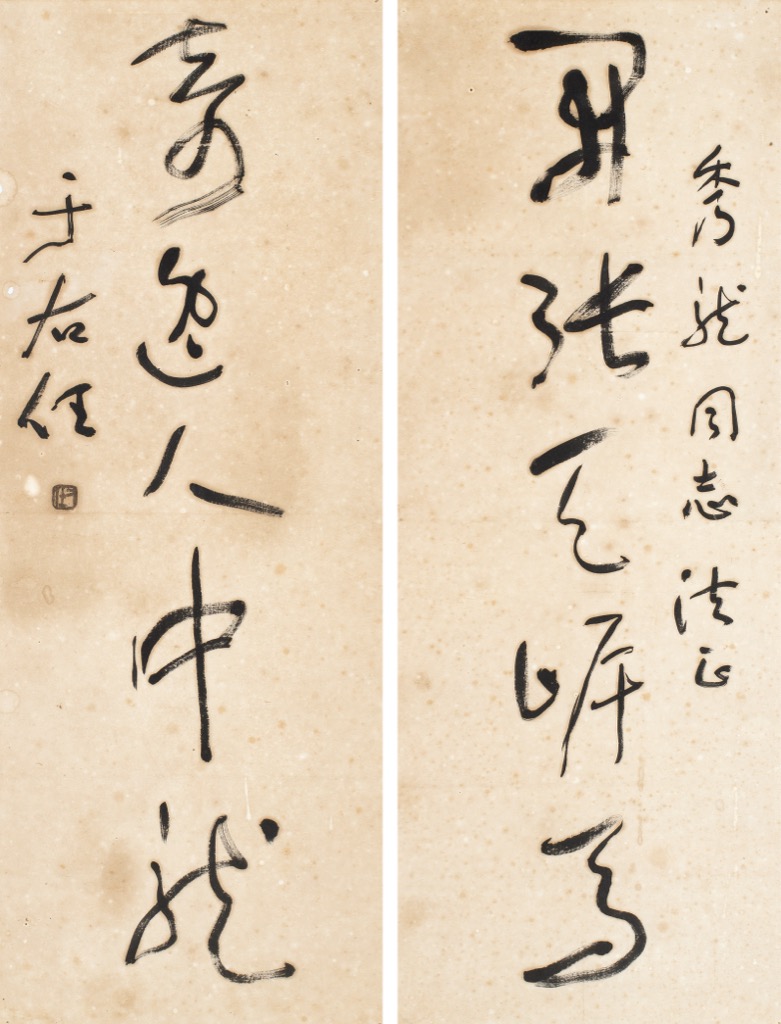 秀龍同志法正
開張天岸馬
奇逸人中龍
于右任